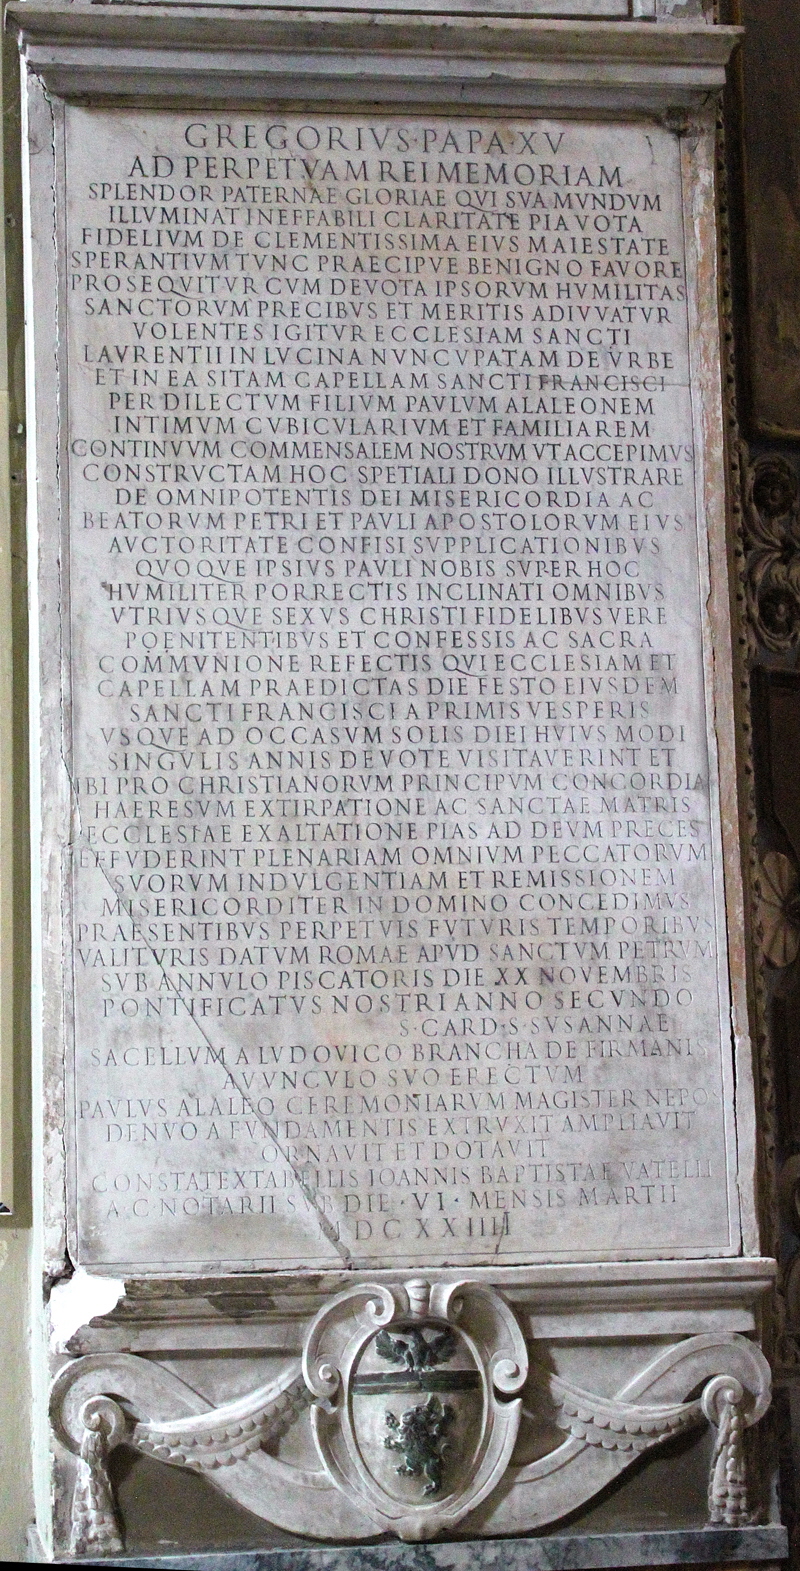 GREGORIVS·PAPA·XV
AD PERPETVAM REI MEMORIAM
SPLENDOR PATERNAE GLORIAE QVI SVA MVNDVM
ILLVMINAT INEFFABILI CLARITATE PIA VOTA
FIDELIVM DE CLEMENTISSIMA EIVS MAIESTATE
SPERANTIVM TVNC PRAECIPVE BENIGNO FAVORE
PROSEQVITVR CVM DEVOTA IPSORVM HVMILITAS
SANCTORVM PRECIBVS ET MERITIS ADIVVATVR
VOLENTES IGITVR ECCLESIAM SANCTI
LAVRENTII IN LVCINA NVNCVPATAM DE VRBE
ET IN EA SITAM CAPELLAM SANCTI FRANCISCI
PER DILECTVM FILIVM PAVLVM ALALEONEM
INTIMVM CVBICVLARIVM ET FAMILIAREM
CONTINVVM COMMENSALEM NOSTRVM VT ACCEPIMVS
CONSTRVCTAM HOC SPETIALI DONO ILLVSTRARE
DE OMNIPOTENTIS DEI MISERICORDIA AC
BEATORVM PETRI ET PAVLI APOSTOLORVM EIVS
AVCTORITATE CONFISI SVPPLICATIONIBVS
QVOQVE IPSIVS PAVLI NOBIS SVPER HOC
HVMILITER PORRECTIS INCLINATI OMNIBVS
VTRIVSQVE SEXVS CHRISTI FIDELIBVS VERE
POENITENTIBVS ET CONFESSIS AC SACRA
COMMVNIONE REFECTIS QVI ECCLESIAM ET
CAPELLAM PRAEDICTAS DIE FESTO EIVSDEM
SANCTI FRANCISCI A PRIMIS VESPERIS
VSQVE AD OCCASVM SOLIS DIEI HVIVS MODI
SINGVLIS ANNIS DEVOTE VISITAVERINT ET
IBI PRO CHRISTIANORVM PRINCIPVM CONCORDIA
HAERESVM EXTIRPATIONE AC SANCTAE MATRIS
ECCLESIAE EXALTATIONE PIAS AD DEVM PRECES
EFFVDERINT PLENARIAM OMNIVM PECCATORVM
SVORVM INDVLGENTIAM ET REMISSIONEM
MISERICORDITER IN DOMINO CONCEDIMVS
PRAESENTIBVS PERPETVIS FVTVRIS TEMPORIBVS
VALITVRIS DATVM ROMAE APVD SANCTVM PETRVM
SVB ANNVLO PISCATORIS DIE XX NOVEMBRIS
PONTIFICATVS NOSTRI ANNO SECVNDO
S·CARD·S·SVSANNAE
SACELLVM A LVDOVICO BRANCHA DE FIRMANIS
AVVNCVLO SVO ERECTVM
PAVLVS ALALEO CEREMONIARVM MAGISTER NEPOS
DENVO A FVNDAMENTIS EXTRVXIT AMPLIAVIT
ORNAVIT ET DOTAVIT
CONSTAT EX TABELLIS IOANNIS BAPTISTAE VATELLI
A.C·NOTARII SVB DIE·VI·MENSIS MARTII
MDCXXIIII